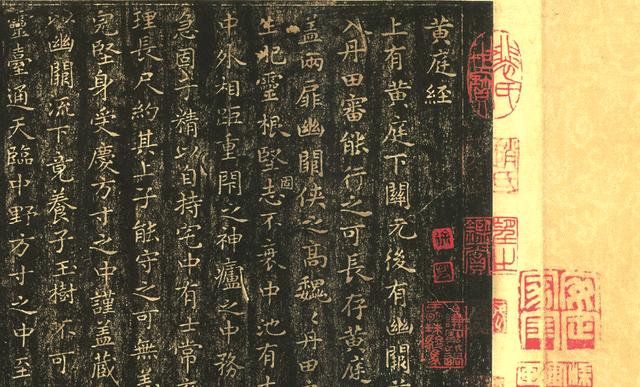 黄庭經
上有黄庭下關元後有幽闕
入丹田審能行之可長存黄庭
盖兩扉幽關俠之高魏〻丹田
生肥靈根堅志不衰中池有
固
中外相距重閇之神廬之中務
急固子精以自持宅中有士常
理長尺約其上子能守之可無恙
宛堅身受慶方寸之中謹盖藏
以幽關流下竟養子玉樹不可
靈臺通天臨中野方寸之中至